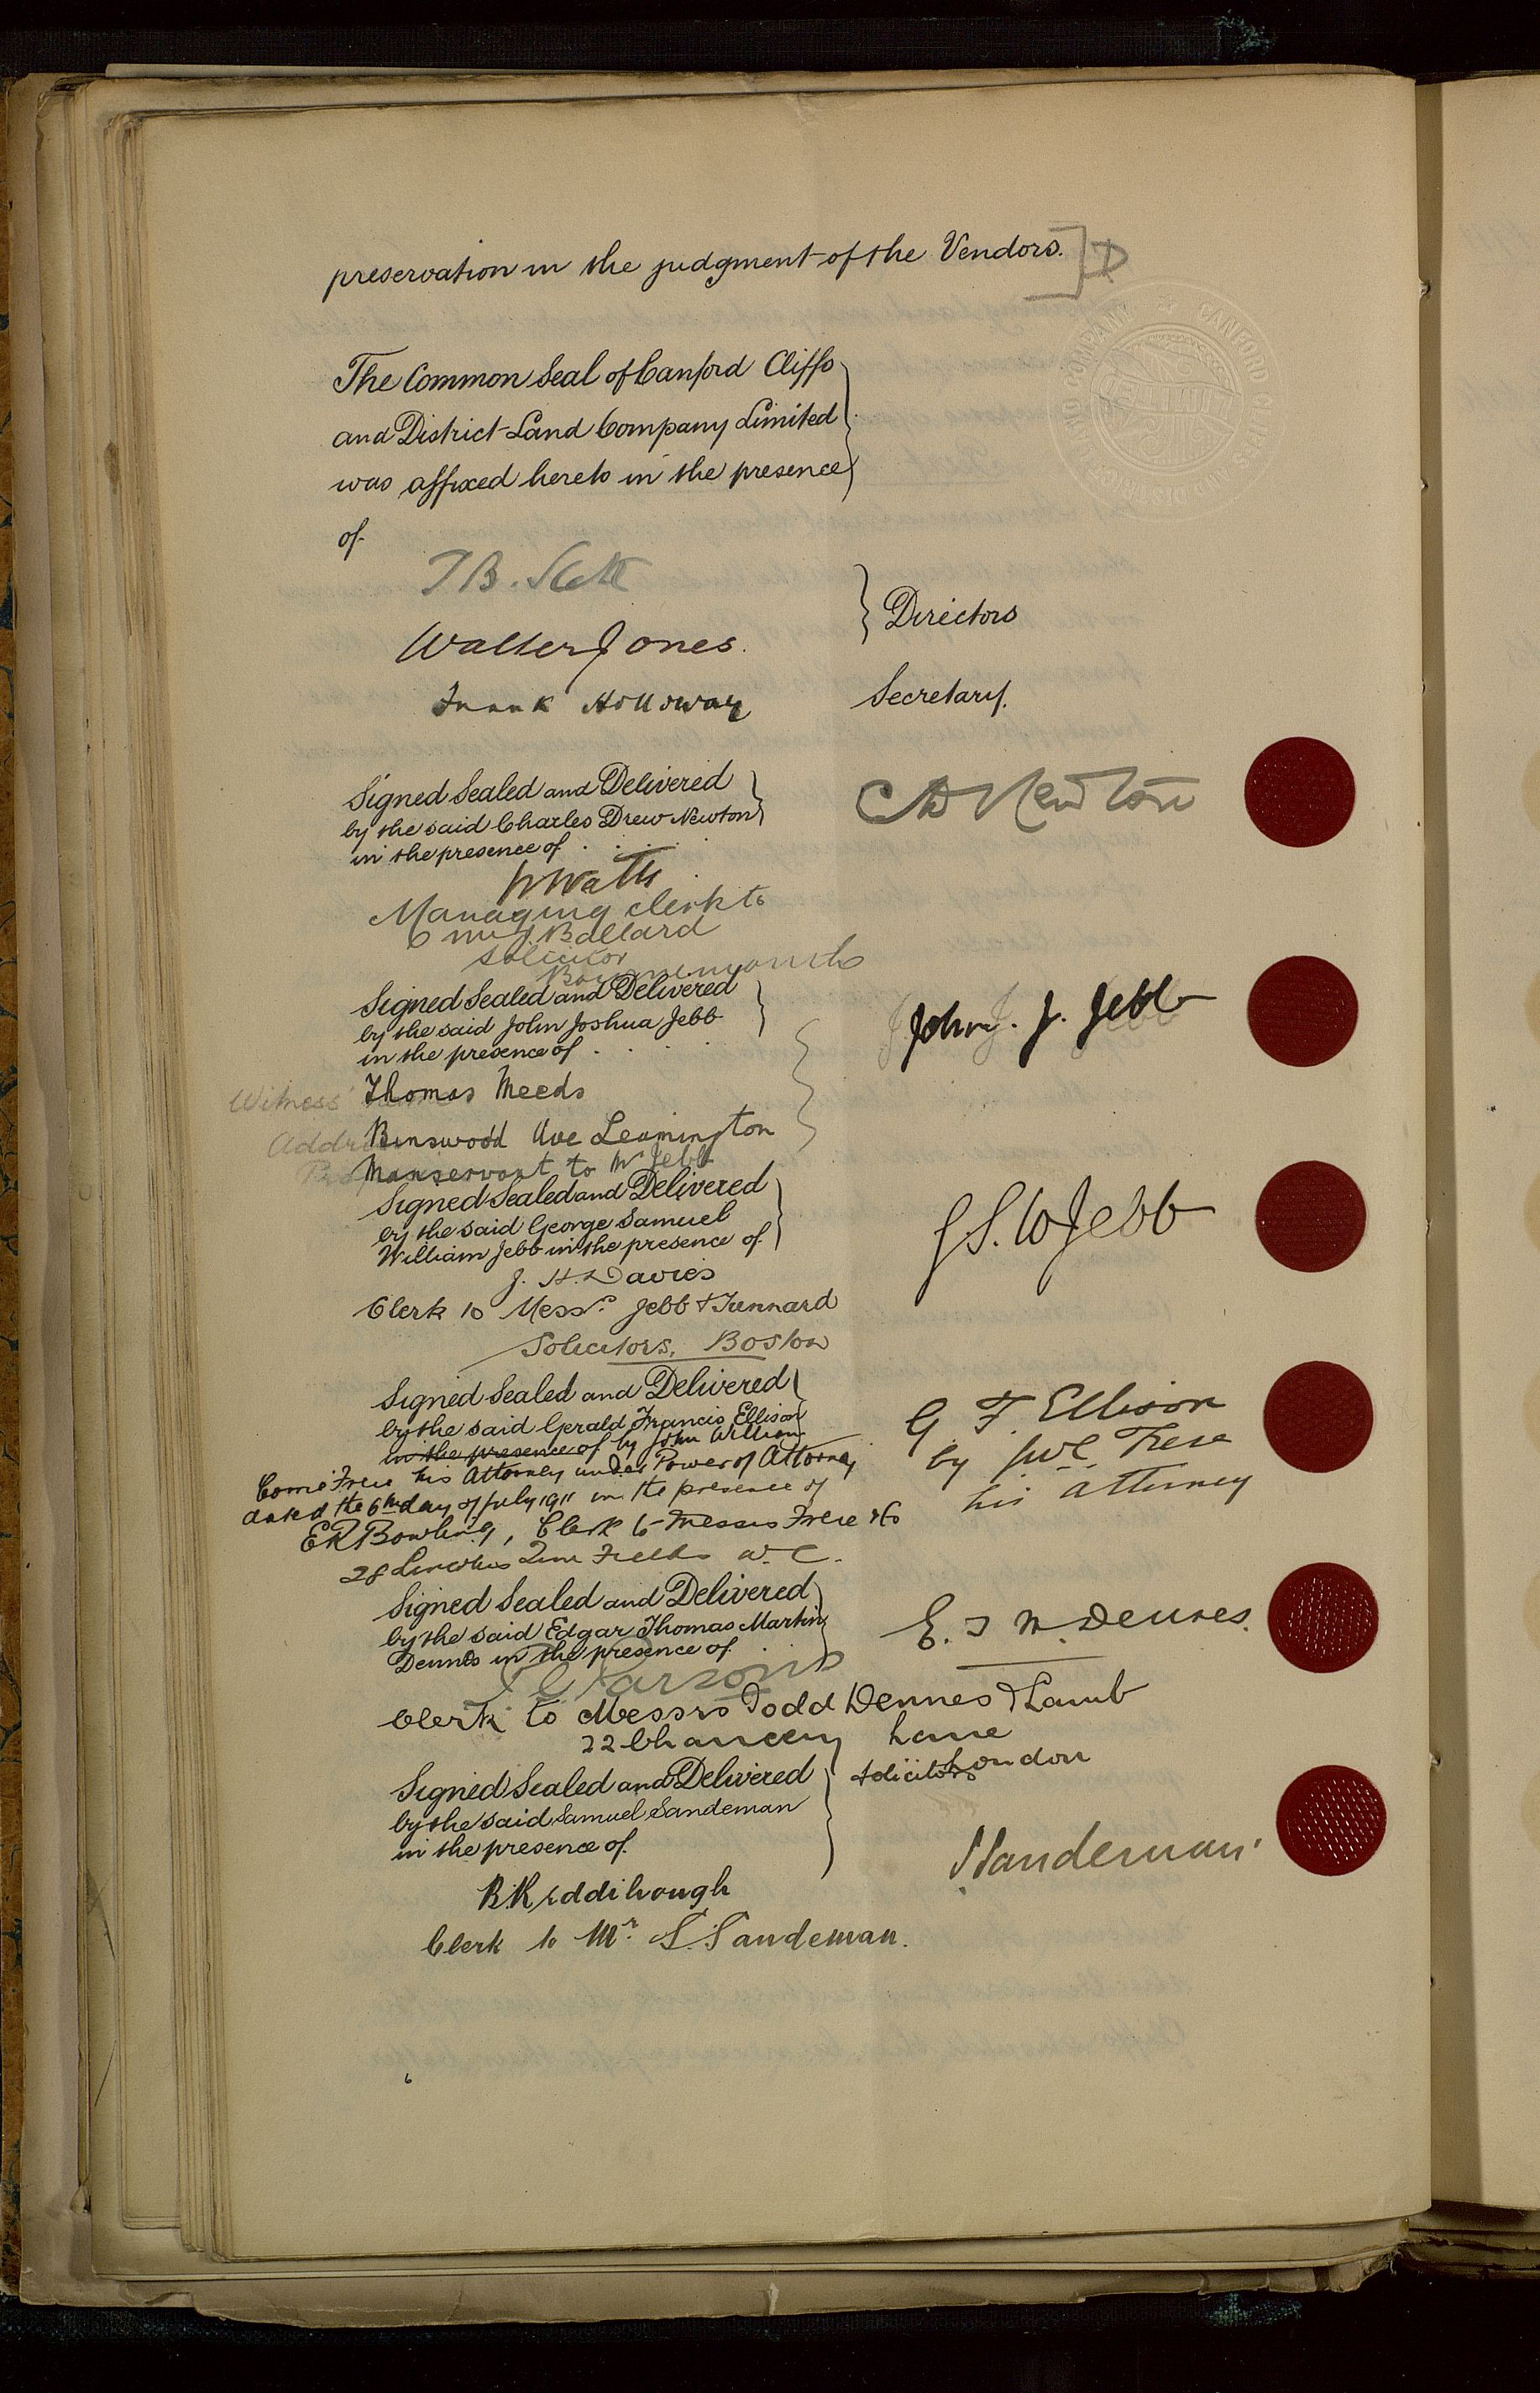 preservation in the judgment of the Vendors. ] D
The Common Seal of Canford Cliffs
and District Land Company Limited
was affixed hereto in the presence
of
T B. Scott
Walter Jones.
Directors
Frank Holloway
Secretary.
Signed Sealed and Delivered
by the said Charles Drew Newton
in the presence of . . . .
C D Newton
Watts
Managing clerk to
Mr J. Ballard
Solicitor
Bournemouth
Signed Sealed and Delivered
by the said John Joshua Jebb
in the presence of . . . .
John. J. Jebb
Witness Thomas Meeds
Binswood Ave Leamington
Manservant to Mr Jebb
Signed Sealed and Delivered
by the said George Samuel
William Jebb in the presence of
G.S.W Jebb
J. H. Davies
Clerk to Messrs. Jebb & Tunnard
Solicitors, Boston
Signed Sealed and Delivered
by the said Gerald Francis Ellison
in the presence of by John William
Come Frere his Attorney under Power of Attorney
dated the 6th day of July 1911 in the presence of
E R Bowling, Clerk to Messrs Frere & Co
28 Lincolns Inn Fields W. C.
G F. Ellison
by J W C Frere
his attorney
Signed Sealed and Delivered
by the said Edgar Thomas Martin
Dennes in the presence of
E. T M. Dennes.
Parsons
Clerk to Messrs Todd Dennes & Lamb
22 Chancery Lane
London
Solicitors
Signed Sealed and Delivered
by the said Samuel Sandeman
in the presence of
S Sandeman
R. Kiddihough
Clerk to Mr. S. Sandeman.